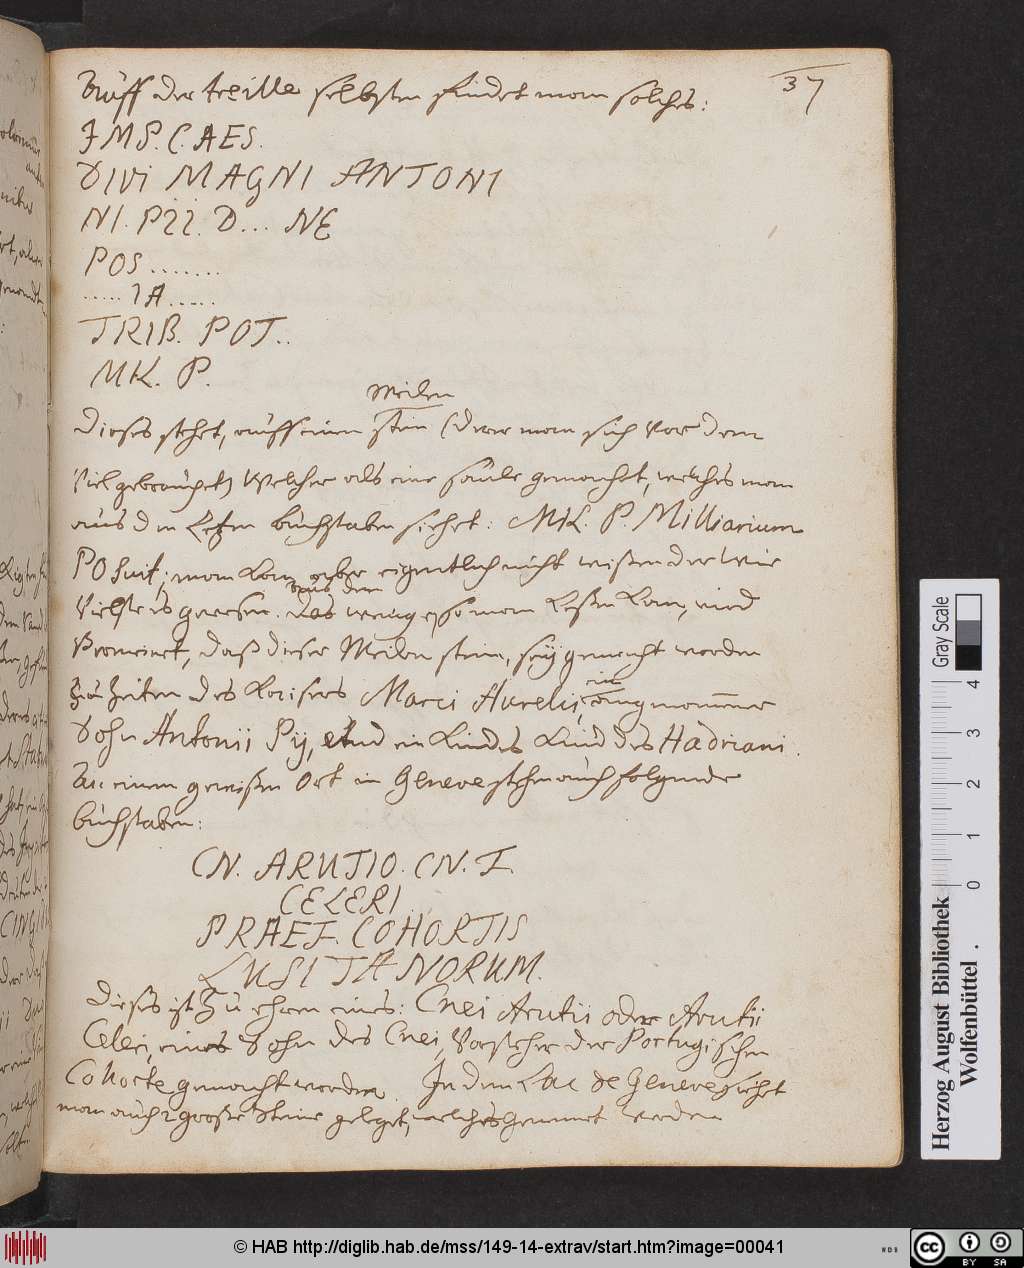 37
Auff der treille selbsten findet man solches:
IMP. CAES.
DIVI MAGNI ANTONI
NI. PII. D... NE
POS.......
.....IA.....
TRIB. POT..
MIL. P.
Meilen
Dieses stehet, auff einen stein (derer man sich vor dem
Viel gebrauchet) Welcher als eine säule gemacht, welches man
aus den Letzen buchstaben siehet: MIL. P. Milliarium
Posuit, man kan aber eigentlich nicht wißen der wie
aus dem
Vielste es gewesen. das wenige so man Leßen kan, wird
Vermeinet, daß dieser Meilen stein, seÿ gemacht worden
ein
zu Zeiten des Kaisers Marci Aurelii, angenommener
Sohn Antonii Pij, und ein Kindes Kind des Hadriani.
An einem gewißen Ort in Geneve stehen auch folgende
buchstaben:
CN. ARUTIO. CN. F.
CELERI
PRAEF. COHORTIS
LUSITANORUM.
Dieses ist Zu ehren eines: Cnei Arutii oder Arutii
Celeri, eines Sohn des Cnei, Vorsteher der Portugischen
Cohorte gemacht worden. In dem Lac de Geneve siehet
man auch 2 große Steine gelegt, welches genennet werden
Herzog August Bibliothek
Wolfenbüttel
Gray Scale
0 1 2 3 4
© HAB http://diglib.hab.de/mss/149-14-extrav/start.htm?image=00041
cc BY SA